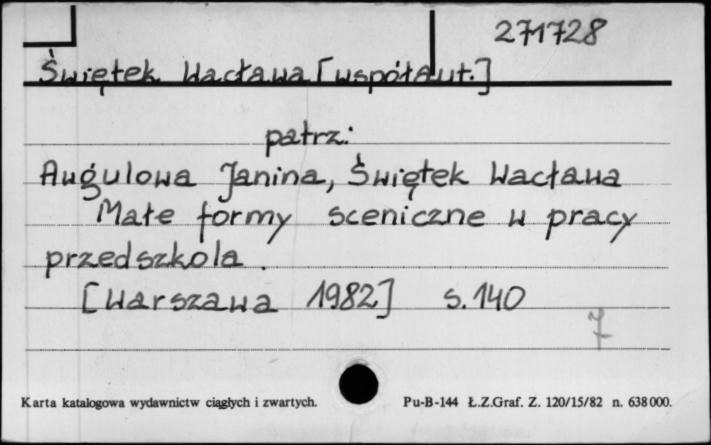 271728
Świętek Wacława [współaut.]
patrz:
Augulowa Janina, Świętek Wacława
Małe formy sceniczne w pracy
przedszkola.
[Warszawa 1982] s. 140
7
Karta katalogowa wydawnictw ciągłych i zwartych. Pu-B-144 Ł.Z.Graf. Z. 120/15/82 n. 638 000.